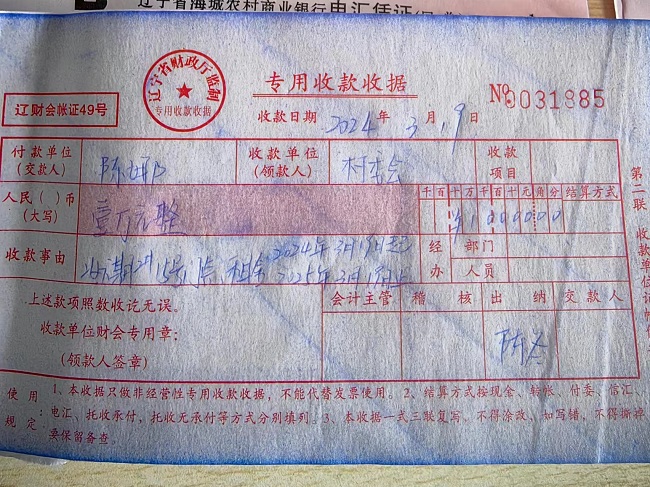 辽宁省海城农村商业银行电汇凭证
专用收款收据
辽宁省财政厅监制
专用收款收据
辽财会帐证49号
收款日期 2024年3月19日
№0031985
付款单位(交款人) 陈娜 收款单位(领款人) 村委会 收款项目
人民( )币(大写) 壹万元整 千百十万千百十元角分 结算方式
¥1000000
收款事由 15号门点租金2024年3月19日起
2025年3月19日止
经办 部门
人员
上述款项照数收讫无误。
收款单位财会专用章：
(领款人签章)
会计主管 稽核 出纳 交款人
第二联 收款单位记帐
使用规定：1、本收据只做非经营性专用收款收据，不能代替发票使用。2、结算方式按现金、转帐、付委、信汇、
电汇、托收承付，托收无承付等方式分别填列。3、本收据一式三联复写。不得涂改、如写错，不得撕掉
要保留备查。